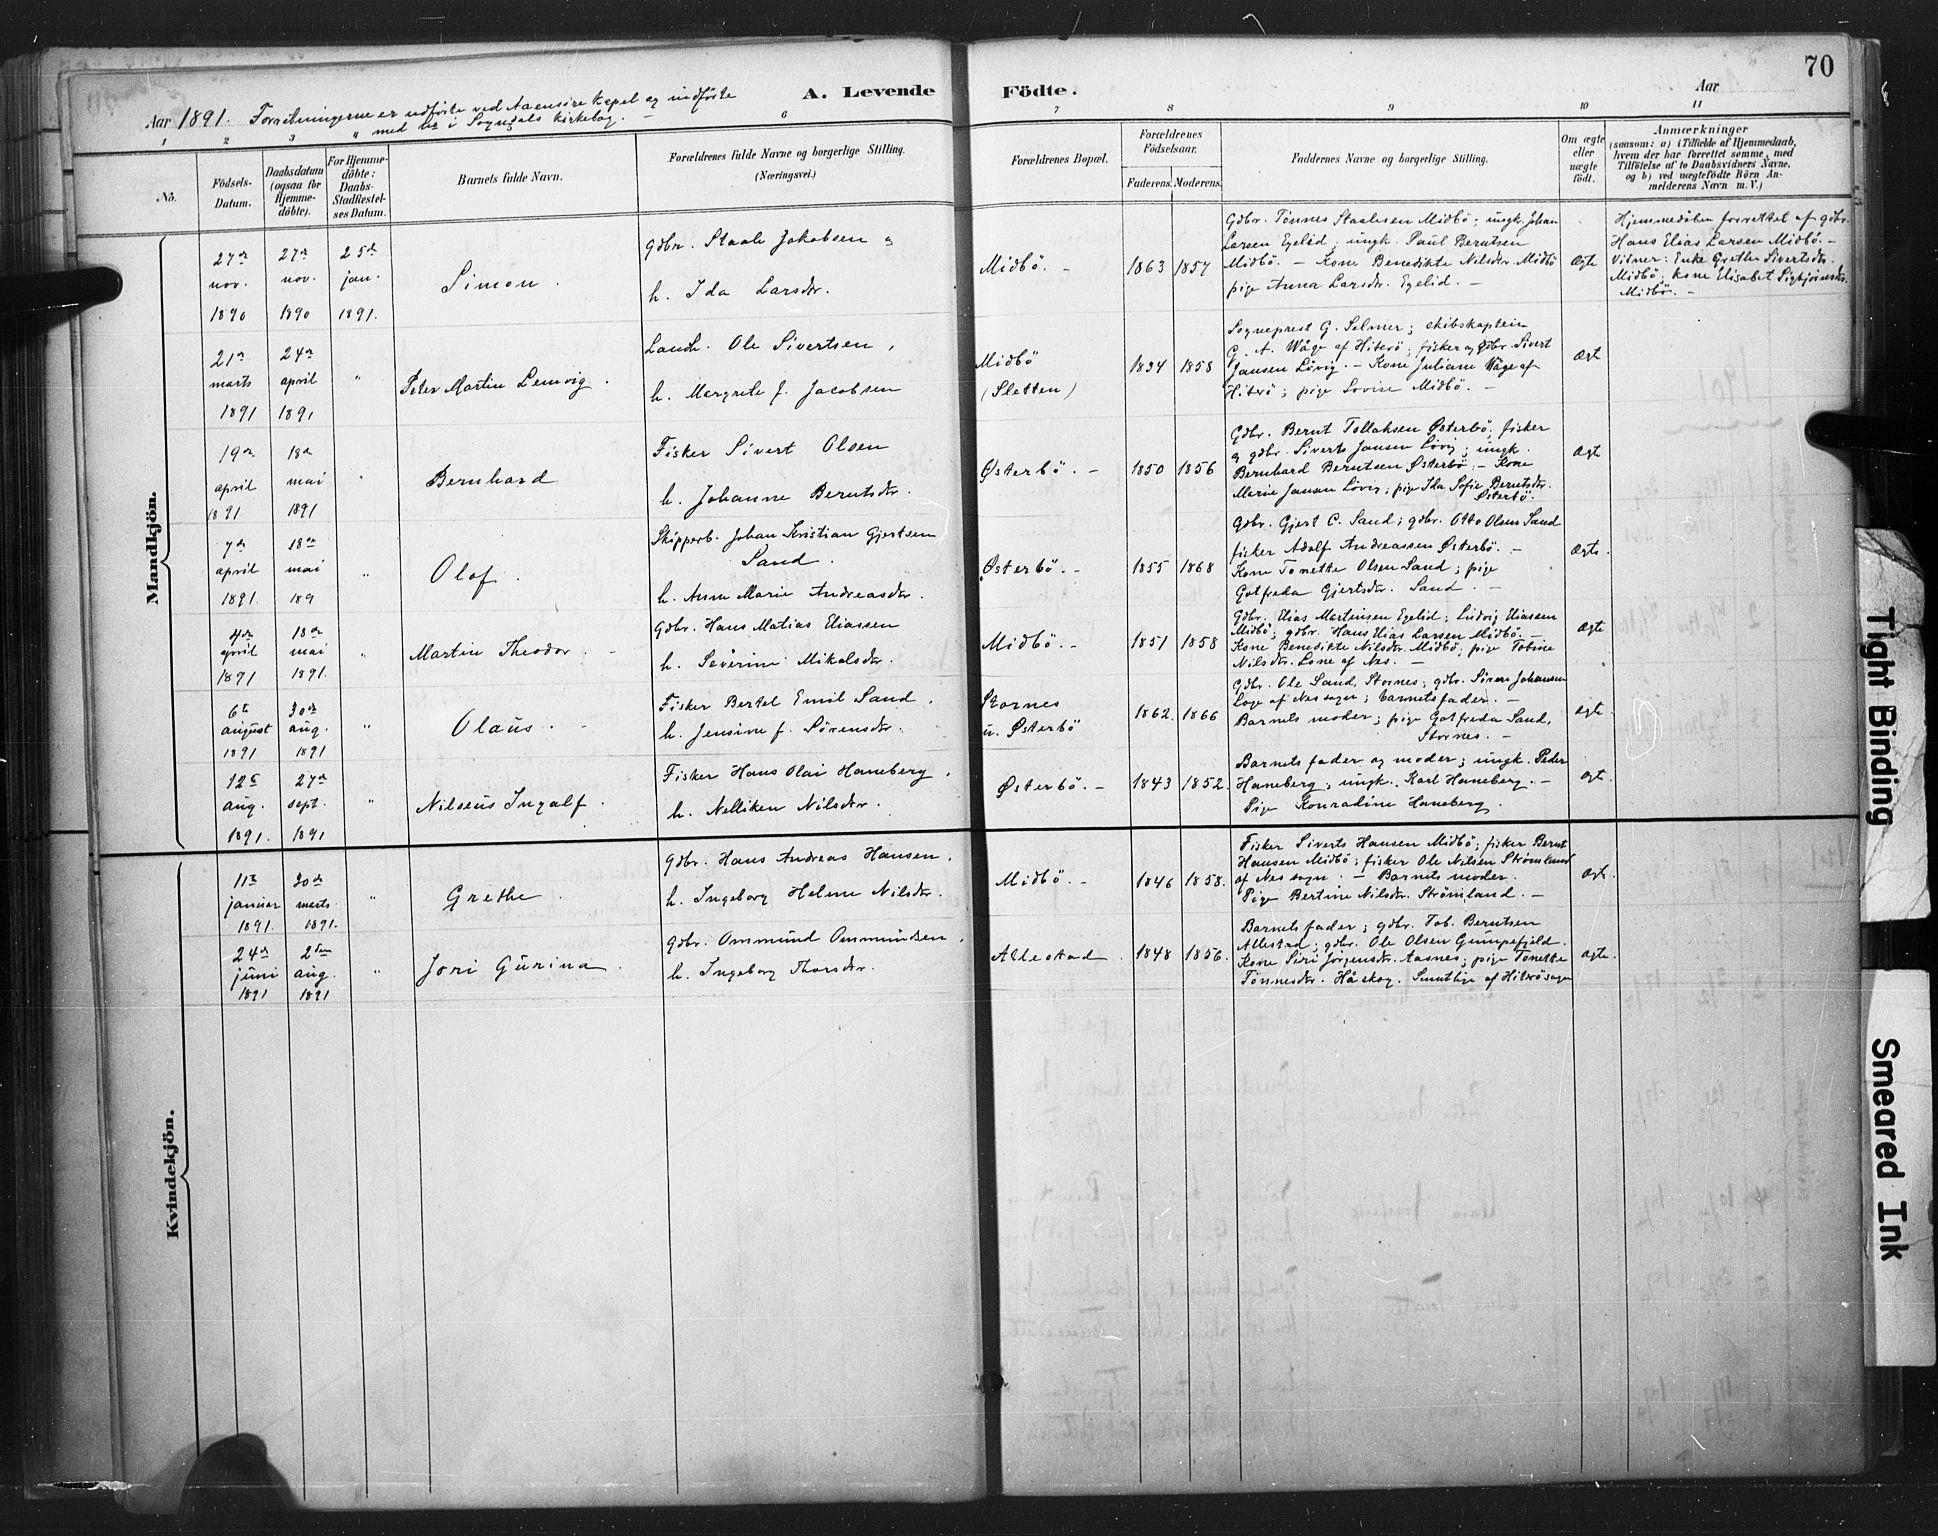 70
Aar 1891. Forretningerne er udførte ved Aaensire kapel og indførte
" med nr i Sogndals kirkebog. -
A. Levende Födte.
Aar
1 2 3 6 7 8 9 10 11
No.
Födsels-Datum.
Daabsdatum (ogsaa for Hjemme-döbte).
For Hjemme-döbte: Daabs-Stadfæstel-ses Datum.
Barnets fulde Navn.
Forældrenes fulde Navne og borgerlige Stilling.
(Næringsvei.)
Forældrenes Bopæl.
Forældrenes Födselsaar.
Faderens. Moderens.
Faddernes Navne og borgerlige Stilling.
Om ægte eller uægte födt.
Anmærkninger
(saasom: a) i Tilfælde af Hjemmedaab, hvem der har forrettet samme, med Tilföielse af to Daabsvidners Navne, og b) ved uægtefödte Börn An-melderens Navn m. V.)
Mandkjön.
27de nov. 1890
27de nov. 1890
25de jan. 1891.
Simon.
Gdbr. Staale Jakobsen og
h. Ida Larsdtr.
Midbö. -
1863 1857
Gdbr. Tønnes Staalesen Midbö; ungk. Johan
Larsen Egelid; ungk. Paul Berntsen
Midbö. - Kone Benedikte Nilsdtr. Midbö
pige Anna Larsdtr. Egelid. -
Ægte
Hjemmedöben forrettet af gdbr.
Hans Elias Larsen Midbö. -
Vitner: Enke Grethe Sivertsdtr.
Midbö, kone Elisabet Sigbjörnsdtr.
Midbö. -
21de marts 1891
24de april 1891
"
Peter Martin Lervig.
Landh. Ole Sivertsen,
h. Margrete J. Jacobsen
Midbö
(Sletten)
1834 1858
Sogneprest G. Selmer; skibskaptein
G. A. Wåge af Hiterö; fisker og gdbr. Sivert
Jansen Lövig. - Kone Juliane Wåge af
Hiterö; pige Lovise Midbö. -
Ægte
19de april 1891
18de mai 1891
"
Bernhard
Fisker Sivert Olsen
h. Johanne Berntsdtr.
Østerbö. -
1850 1856
Gdbr. Bernt Tollaksen Østerbö; fisker
og gdbr. Siverts Jansen Lövig; ungk.
Bernhard Berntsen Østerbö - Kone
Marie Jansen Lövig; pige Ida Sofie Berntsdtr.
Østerbö.
Ægte
7de april 1891.
18de mai 189
"
Olaf.
Skipperb. Johan Kristian Gjertsen
Sand.
h. Anne Marie Andreasdtr.
Østerbö. -
1855 1868
Gdbr. Gjert C. Sand; gdbr. Otto Olsen Sand
fisker Adolf Andreassen Østerbö. -
Kone Tonette Olsen Sand; pige
Gotfreda Gjertsdtr. Sand. -
Ægte.
4de april 1891
18de mai 1891.
"
Martin Theodor. -
Gdbr. Hans Matias Eliassen
h. Severine Mikalsdtr.
Midbö. -
1851 1858
Gdbr. Elias Martinsen Egelid; Ludvig Eliasen
Midbö; gdbr. Hans Elias Larsen Midbö. -
Kone Benedikte Nilsdtr. Midbö; pige Tobine
Nilsdtr. Lone af Nes. -
Ægte
6te august 1891
30de aug. 1891
"
Olaus. -
Fisker Bertel Emil Sand,
h. Jensine f. Sörensdtr.
Stornes
u. Østerbö
1862. 1866
Gdbr. Ole Sand, Stornes; gdbr. Sören Johansen
Loge af Nes sogn; barnets fader. -
Barnets moder; pige Gotfreda Sand,
Stornes. -
ægte.
12te aug. 1891.
27de sept. 1891
"
Nilseus Ingolf.
Fisker Hans Olai Haneberg,
h. Nelliken Nilsdtr.
Østerbö. -
1843 1852.
Barnets fader og moder; ungk. Peder
Haneberg; ungk. Karl Haneberg. -
Pige Konradine Haneberg.
ægt.
Kvindekjön.
11te januar 1891.
30de marts 1891.
"
Grethe
Gdbr. Hans Andreas Hansen,
h. Ingeborg Helene Nilsdtr.
Midbö. -
1846 1858.
Fisker Siverts Hansen Midbö; fisker Bernt
Hansen Midbö; fisker Ole Nilsen Strömland
af Nes sogn. - Barnets moder.
Pige Bertine Nilsdtr. Strömland. -
Ægt.
24de juni 1891
2den aug. 1891
"
Jori Gurina.
Gdbr. Ommund Ommundsen,
h. Ingeborg Thorsdtr.
Allestad.
1848 1856.
Barnets fader; gdbr. Tob. Berntsen
Allestad; gdbr. Ole Olsen Gumpefjeld.
Kone Siri Jörgensdtr. Aasnes; pige Tonette
Tönnesdtr. Håskog. Samtlige af Hiterö sogn
ægte.
Tight Binding
Smeared Ink